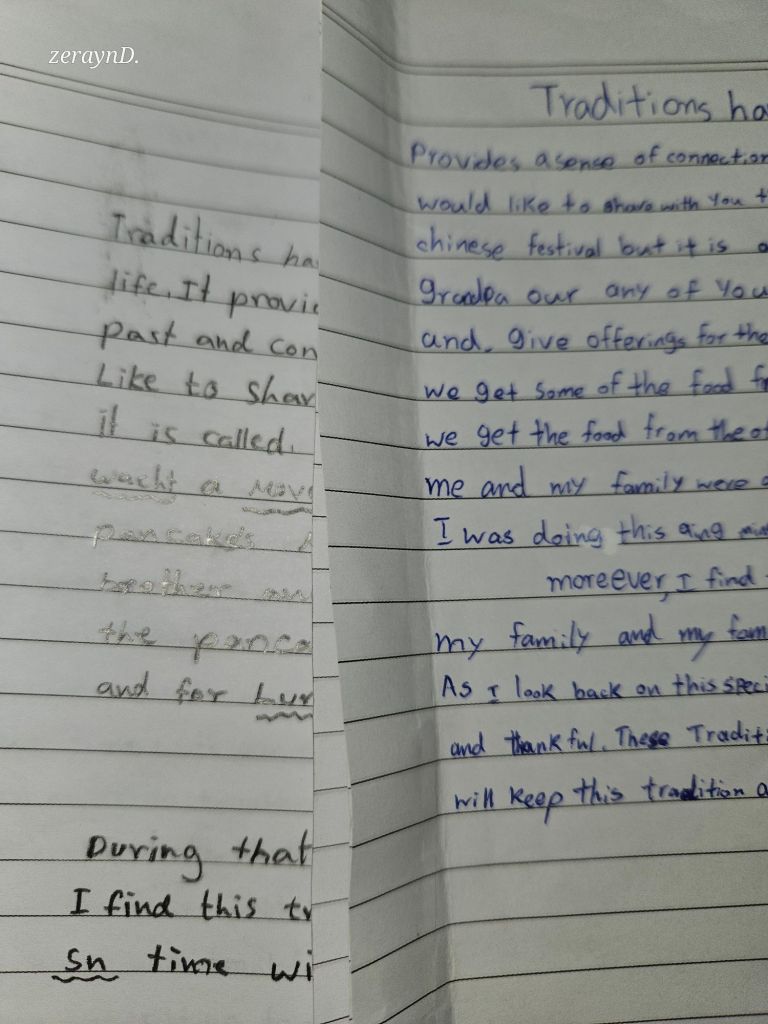 zeraynD.
Traditions ha
life, It provid
Past and con
Like to shar
it is called.
a
pancakes
brother
the panca
and for
During that
I find this tr
sn time wi
Traditions ha
Provides a sense of connection
would like to share with you t
chinese festival but it is a
grandpa our any of you
and. give offerings for the
we get some of the food fr
we get the food from the of
me and my family were
I was doing this
moreever, I find
my family and my fam
As I look back on this speci
and thankful. These Traditi
will keep this tradition a